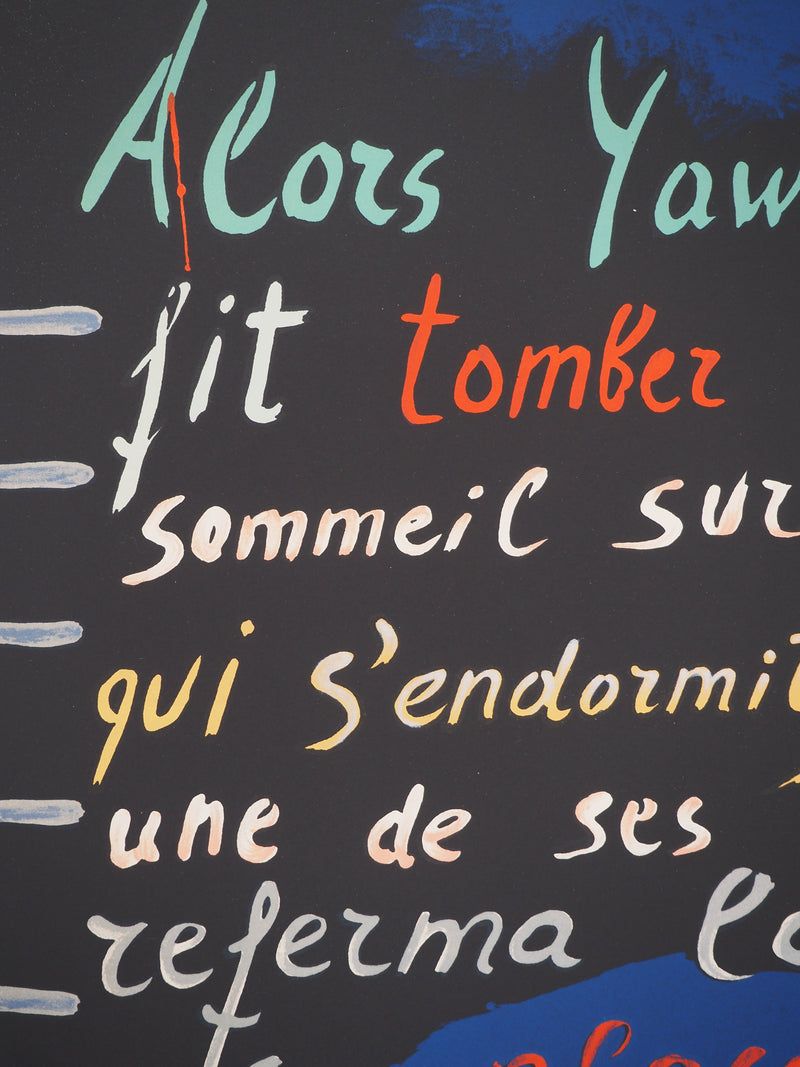 Alors Yaw
fit tomber
sommeil sur
qui s'endormit
une de ses
referma la
place